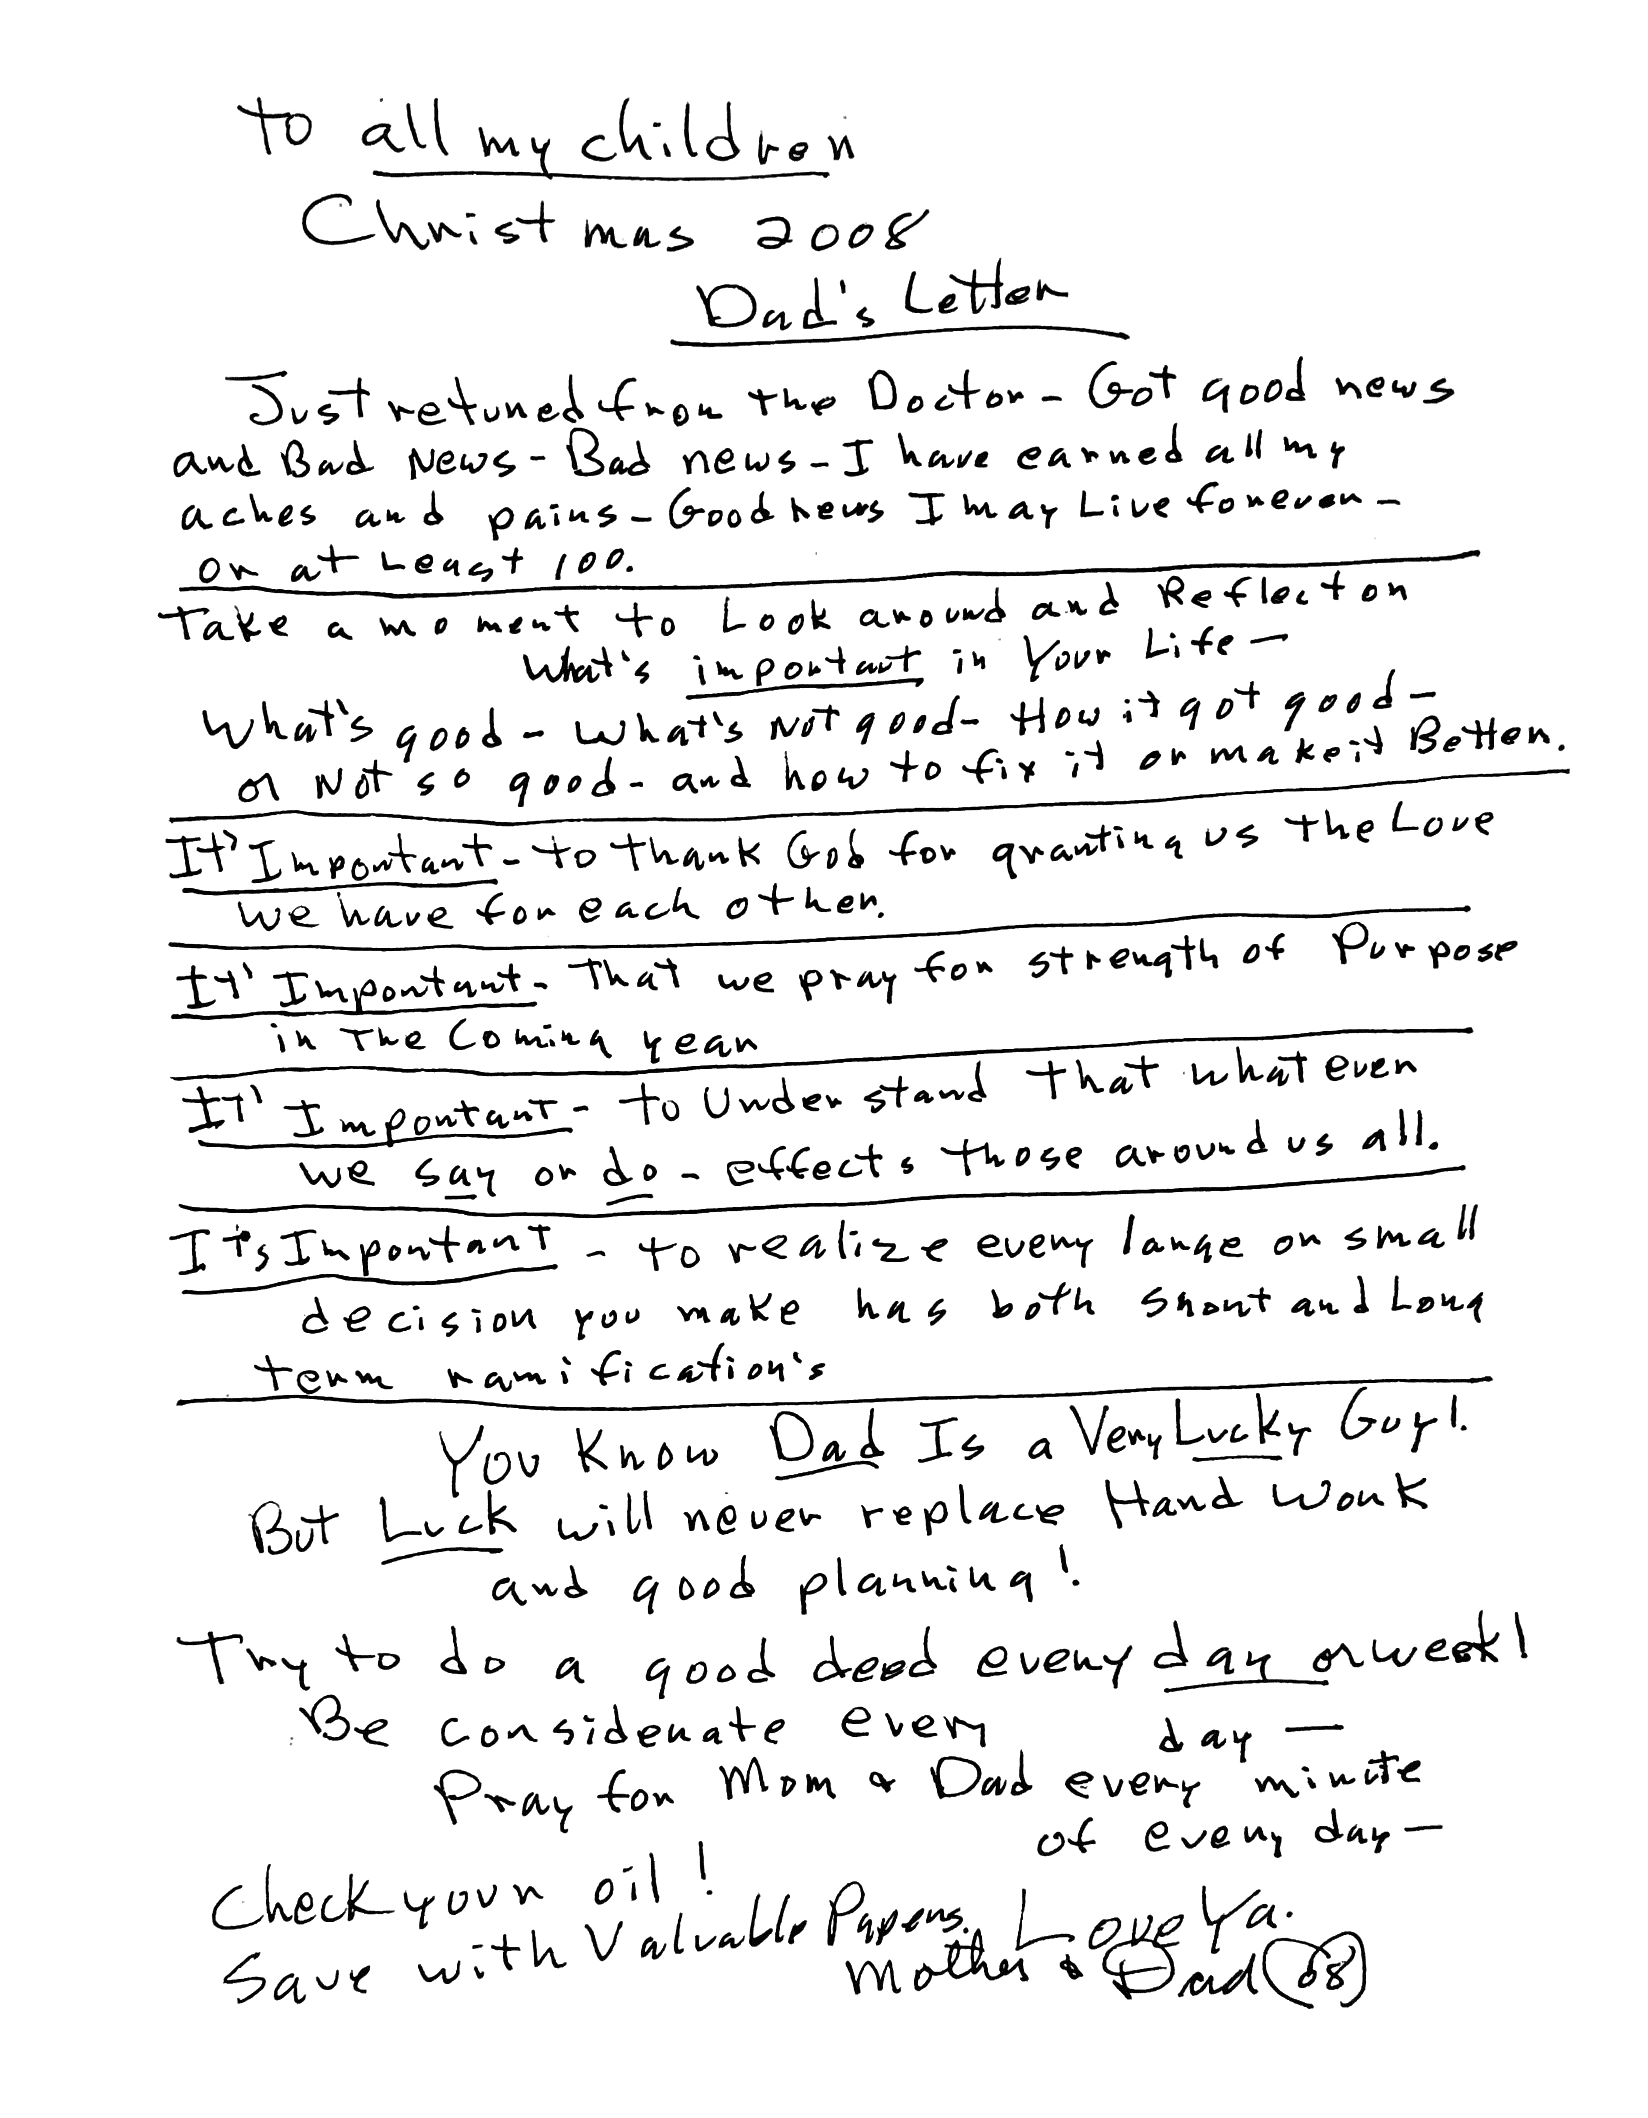 to all my children
Christmas 2008
Dad's Letter
Just retuned from the Doctor - Got good news
and Bad News - Bad news - I have earned all my
aches and pains - Good news I may Live forever -
or at Least 100.
Take a moment to Look around and Reflect on
What's important in Your Life -
What's good - What's Not good - How it got good -
or Not so good - and how to fix it or make it Better.
It' Important - to thank God for granting us the Love
we have for each other.
It' Important - That we pray for strength of Purpose
in The Coming year
It' Important - to Understand that what ever
we say or do - effects those around us all.
It's Important - to realize every large or small
decision you make has both Short and Long
term ramification's
You Know Dad Is a Very Lucky Guy!.
But Luck will never replace Hard Work
and good planning!
Try to do a good deed every day or week!
Be considerate every day -
Pray for Mom & Dad every minute
of every day -
Check your oil!
Save with Valuable Papers.
Love Ya.
Mother & Dad (08)